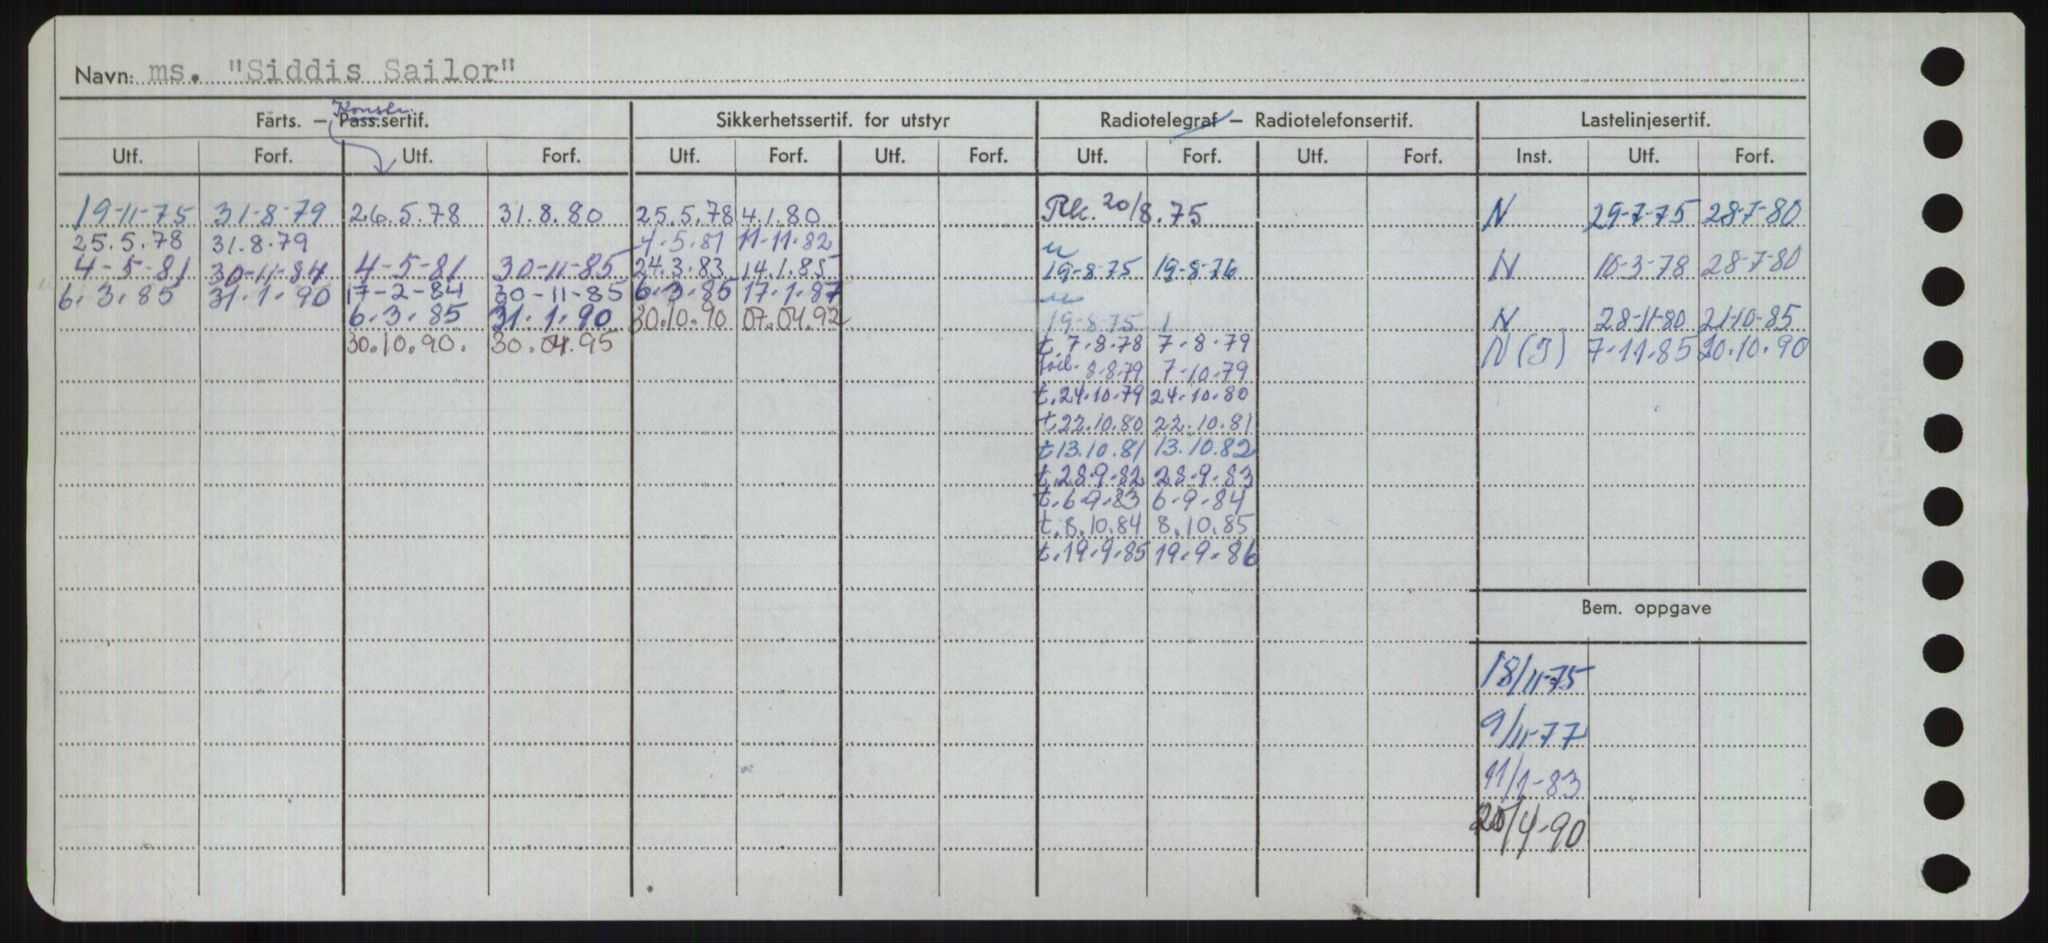 Navn: ms. "Siddis Sailor"
Konstr.
Farts. — Pass.sertif. Sikkerhetssertif. for utstyr Radiotelegraf — Radiotelefonsertif. Lastelinjesertif.
Utf. Forf. Utf. Forf. Utf. Forf. Utf. Forf. Utf. Forf. Utf. Forf. Inst. Utf. Forf.
19-11-75 31-8-79 26.5.78 31.8.80 25.5.78 4.1.80 Rk. 20/8.75 N 29-7-75 28-7-80
25.5.78 31.8.79 4.5.81 11-11-82
4-5-81 30-11-84 4-5-81 30-11-85 24.3.83 14.1.85 19-8-75 19-8-76 N 10-3-78 28-7-80
6.3.85 31.1.90 17-2-84 30-11-85 6.3.85 17.1.87
6.3.85 31.1.90 30.10.90 07.04.92 19-8-75 N 28-11-80 21-10-85
30.10.90. 30.04.95 t.7.8.78 7-8-79 N(I) 7.11.85 20.10.90
8-8-79 7-10-79
t.24.10.79 24.10.80
t.22.10.80 22.10.81
t.13.10.81 13.10.82
t.28.9.82 28.9.83
t.6.9.83 6.9.84
t.8.10.84 8.10.85
t.19.9.85 19.9.86
Bem. oppgave
18/11-75
9/11-77
11/1-83
20/4-90